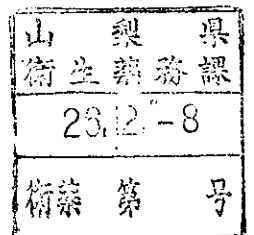 山梨県
衛生薬務課
26.12.-8
衛薬第 号